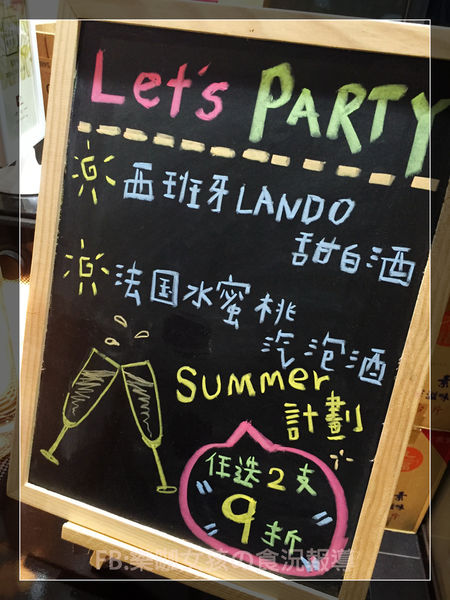 Let's PARTY
西班牙LANDO
甜白酒
法国水蜜桃
汽泡酒
Summer
計劃
任选2支
"9折"
FB:樂融女孩の食況報導